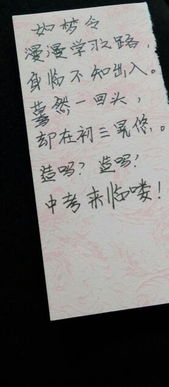 如梦令
漫漫学习之路，
身临不知出入。
蓦然一回头，
却在初三晃悠。
造吗？造吗？
中考来临喽！